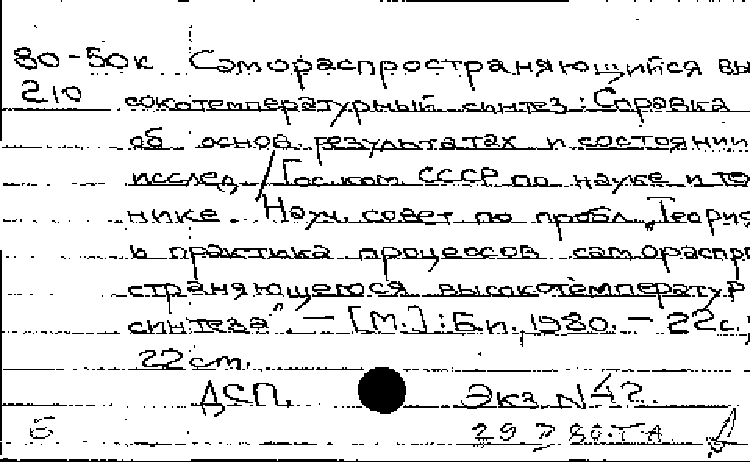 80-50к Самораспространяющийся вы
210 сокотемпературный синтез: Справка
об основ. результатах и состоянии
исслед. / Гос. ком. СССР по науке и те
нике. Науч. совет по пробл. "Теория
и практика процессов самораспро
страняющегося высокотемператур
синтеза". — [М.]: Б.и., 1980. — 22 с.;
22 см.
ДСП. Экз. N 42.
Б